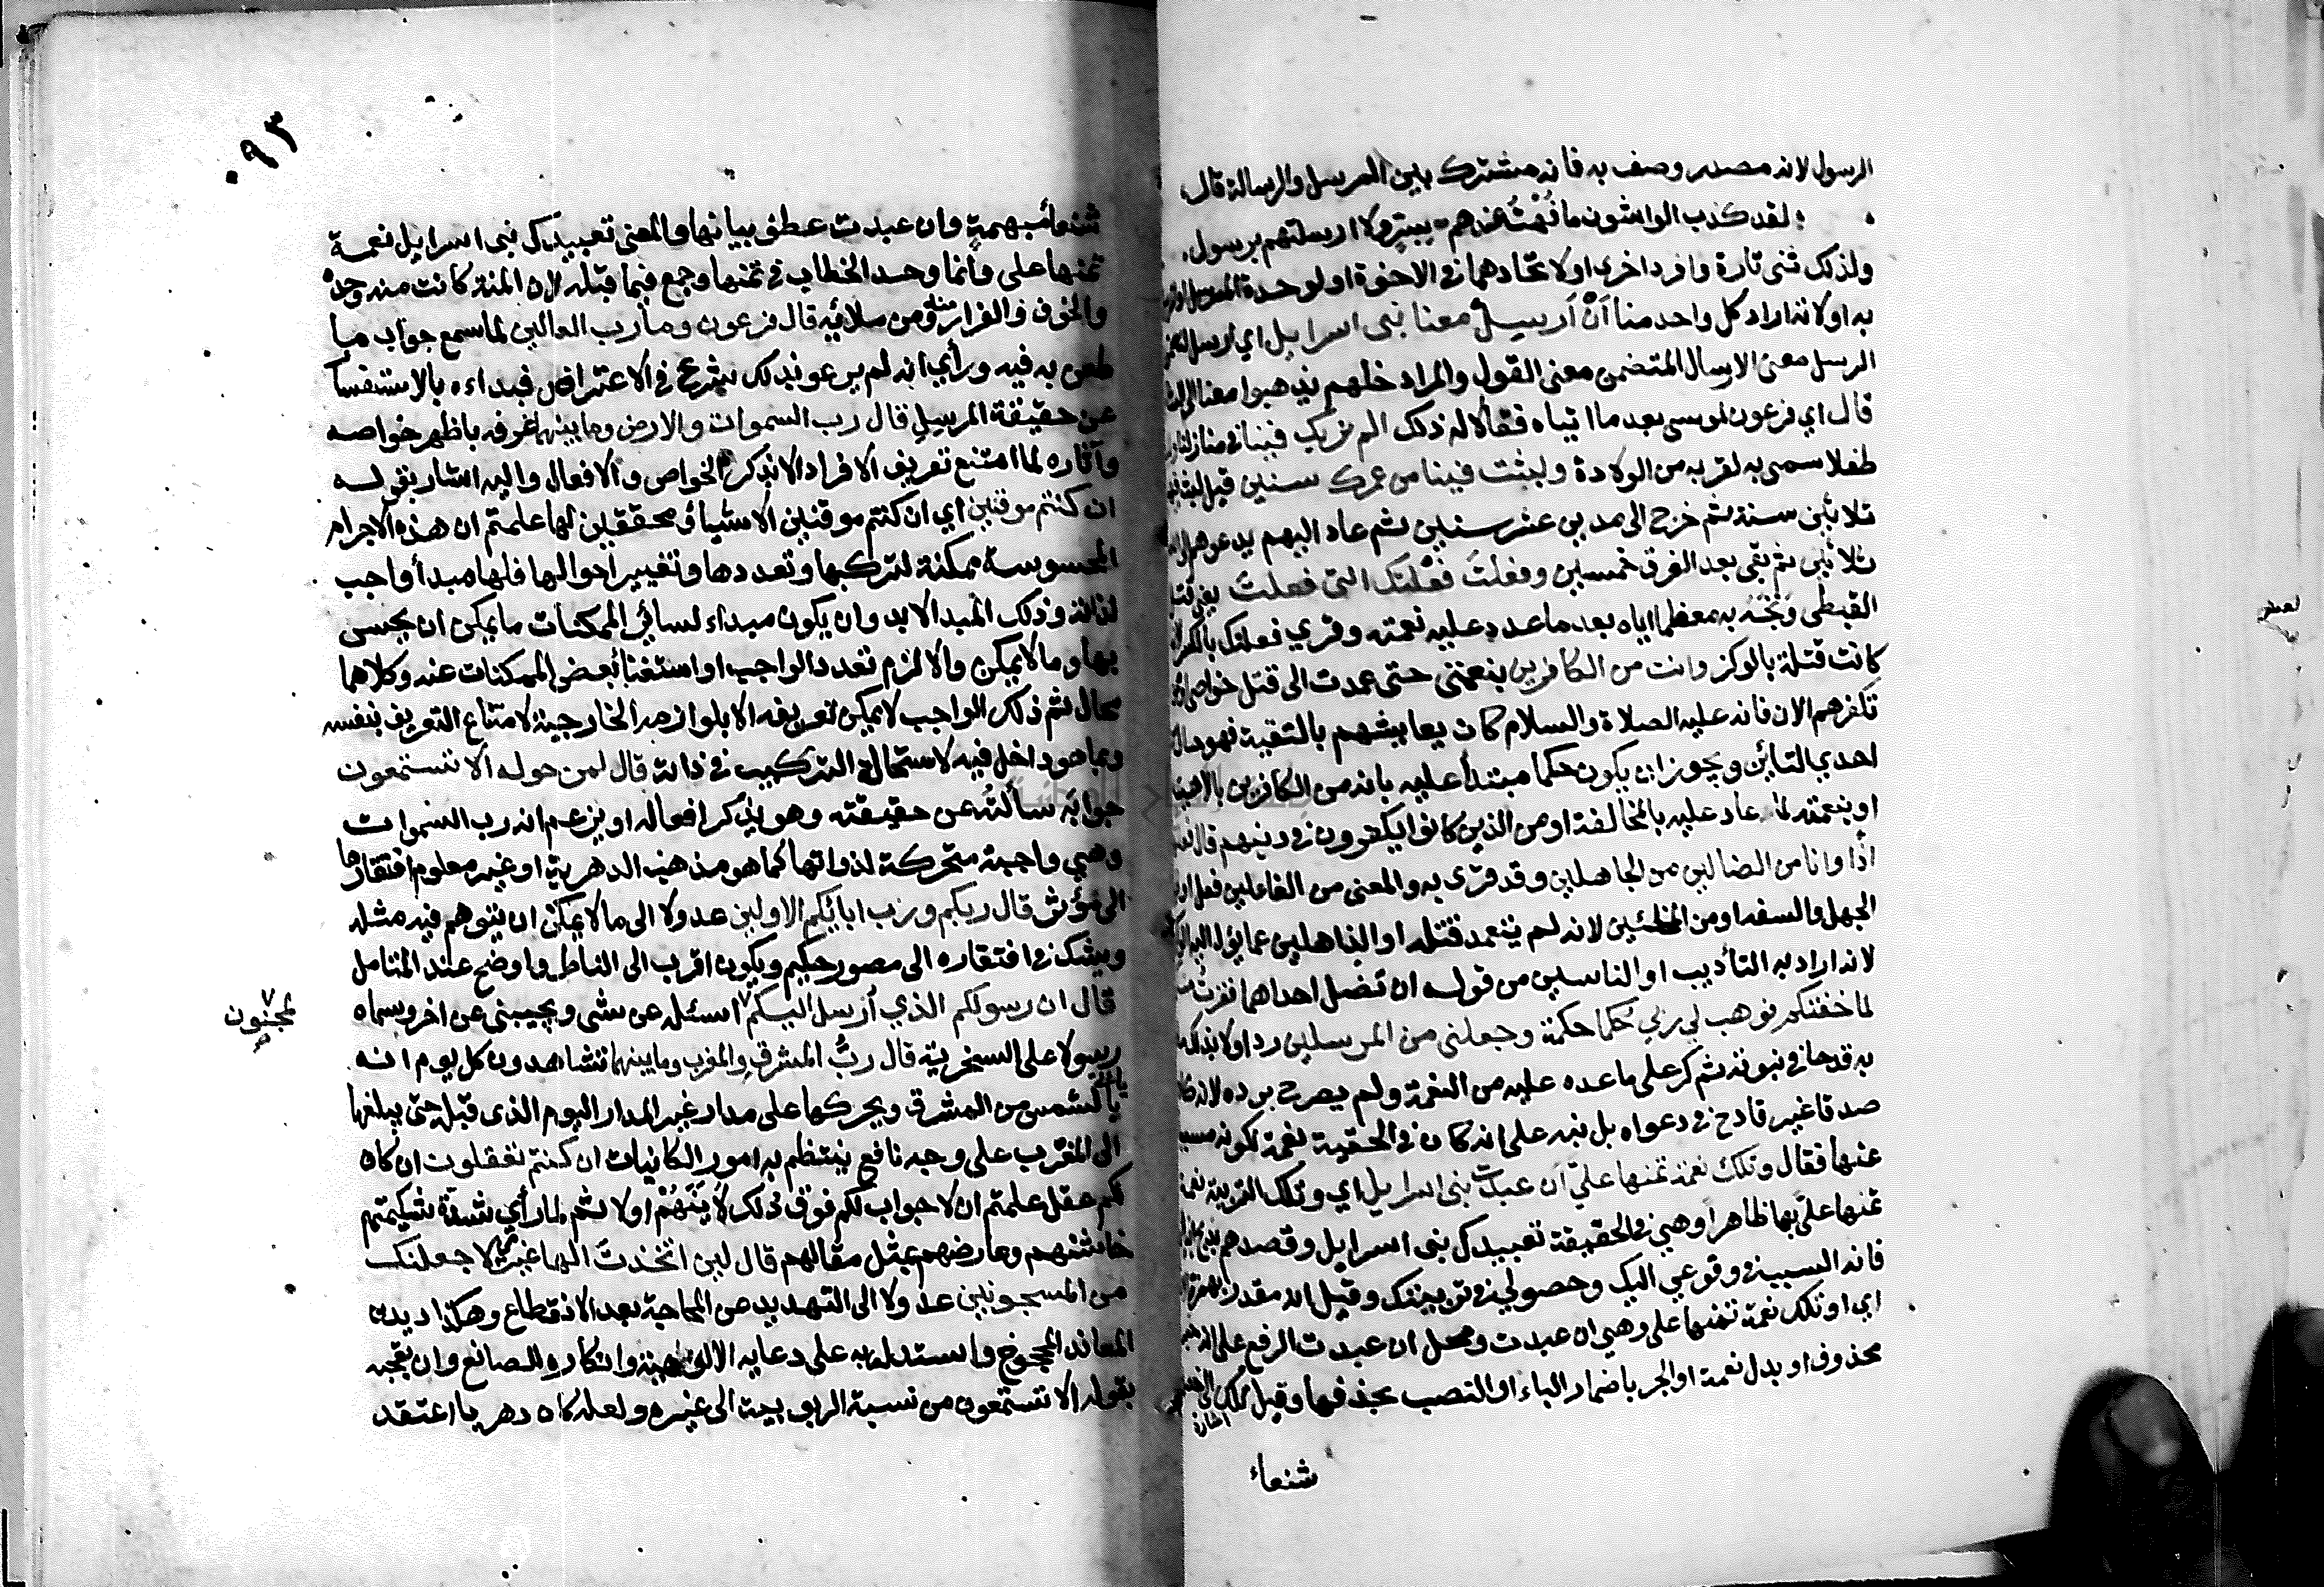 الرسول لانه مصدر وصف به فانه مشترك بين المرسل والرسالة قال
لقد كذب الواشون ما فهت عندهم بسر ولا ارسلتهم برسول
ولذلك ثنى تارة وافرد اخرى او لاتحادهما في الاخوة او لوحدة المرسل
به او لانه اراد كل واحد منا اَنْ اَرسِلْ معنا بنى اسرايل اي ارسل
الرسل معنى الارسال المتضمن معنى القول والمراد خلهم يذهبوا معنا الى
قال اي فرعون لموسى بعد ما اتياه فقالا له ذلك الم نربك فينا في منازلنا
طفلا سمى به لقربه من الولادة ولبثت فينا من عمرك سنين قيل لبث فيهم
ثلاثين سنة ثم خرج الى مدين عشر سنين ثم عاد اليهم يدعوهم الى
ثلاثين ثم بقى بعد الغرق خمسين وفعلتَ فَعْلتك التى فعلتَ يعني قتل
القبطى وبخه به معظما اياه بعد ما عدد عليه نعمته وقري فعلتك بالكسر
كانت قتلة بالوكز وانت من الكافرين بنعمتى حتى عمدت الى قتل خواصي
تكفرهم الان فانه عليه الصلاة والسلام كان يعايشهم بالتقية فهو حال
احدي التائين ويجوز ان يكون حكما مبتدأ عليه بانه من الكافرين
او بنعمته لما عاد عليه بالمخالفة او من الذين كانوا يكفرون في دينهم قال
اذًا وانا من الضالين من الجاهلين وقد قرى به والمعنى من الفاعلين فعل
الجهل والسفه او من المخطئين لانه لم يتعمد قتله او الذاهلين عما يؤل اليه
لانه اراد به التأديب او الناسين من قوله ان تضل احداهما ففرت
لما خفتكم فوهب لي ربي حُكما حكمة وجعلنى من المرسلين رد اولا بذلك
به قدحا في نبوته ثم كر على ما عده عليه من النعمة ولم يصرح برده لانه
صدقا غير قادح في دعواه بل نبه على انه كان في الحقيقة نقمة لكونه
عنها فقال وتلك نعمة تمنها عليّ ان عبدت بنى اسرايل اي وتلك التربية نعمة
تمنها علىّ بها ظاهراً وهي في الحقيقة تعبيدك بنى اسرايل وقصدهم
فانه السبب في وقوعي اليك وحصولي في تربيتك وقيل انه مقدر بهمزة
اي او تلك نعمة تمنها على وهي ان عبدت ومحل ان عبدت الرفع على انه خبر
محذوف او بدل نعمة او الجر باضمار الباء او النصب بحذفها وقيل تلك
اشارة
شنعاء
٠٩٣
شنعاء مبهمة وان عبدت عطف بيانها والمعنى تعبيدك بنى اسرايل نعمة
تمنها على وانما وحد الخطاب في تمنها وجمع فيما قبله لان المنة كانت منه وحده
والخوف والفرار منه ومن ملائه قال فرعون وما رب العالمين لما سمع جواب ما
طعن به فيه ورأي انه لم يرعو بذلك شرع في الاعتراض فبداء بالاستفسا
عن حقيقة المرسِل قال رب السموات والارض وما بينهما عرفه باظهر خواصه
وآثاره لما امتنع تعريف الافراد الا بذكر الخواص والافعال واليه اشار بقوله
ان كنتم موقنين اي ان كنتم موقنين الاشياء محققين لها علمتم ان هذه الاجرام
المحسوسة ممكنة لتركبها وتعددها وتغيير احوالها فلها مبدأ واجب
لذاته وذلك المبدا لابد وان يكون مبداء لسائر الممكنات ما يمكن ان يحس
بها وما لا يمكن والا لزم تعدد الواجب او استغنا بعض الممكنات عنه وكلاهما
محال ثم ذلك الواجب لا يمكن تعريفه الا بلوازمه الخارجية لامتناع التعريف بنفسه
وبما هو داخل فيه لاستحالة التركيب في ذاته قال لمن حوله الا تستمعون
جوابَه سالتُه عن حقيقته وهو يذكر افعاله او يزعم انه رب السموات
وهي واجبة متحركة لذواتها كما هو مذهب الدهرية او غير معلوم افتقارها
الى مؤثر قال ربكم ورب ابائكم الاولين عدولا الى ما لا يمكن ان يتوهم فيه مثله
ويشك في افتقاره الى مصور حكيم ويكون اقرب الى الناظر واوضح عند المتامل
قال ان رسولكم الذي أرسل اليكم ٧ اسئله عن شى ويجيبنى عن اخر وسماه
٧ لمجنون
رسولا على السخرية قال ربُّ المشرقِ والمغرب وما بينهما تشاهدون كل يوم انه
ياتى
بالشمس من المشرق ويحركها على مدار غير المدار اليوم الذى قبله حتى يبلغها
الى المغرب على وجه نافع ينتظم به امور الكاينات ان كنتم تعقلون ان كان
لكم عقل علمتم ان لا جواب لكم فوق ذلك لاَيَنَهُمْ اولا ثم لما رأي شدة شكيمتهم
خاشنهم وعارضهم بمثل مقالهم قال لين اتخذتَ الها غيري لاجعلنك
من المسجونين عدولا الى التهديد عن المحاجة بعد الانقطاع وهكذا ديدن
المعاند المحجوج واستدل به على دعايه الالوهية وانكاره الصانع وان تعجبه
بقوله الا تستمعون من نسبة الربوبية الى غيره ولعله كان دهريا اعتقد